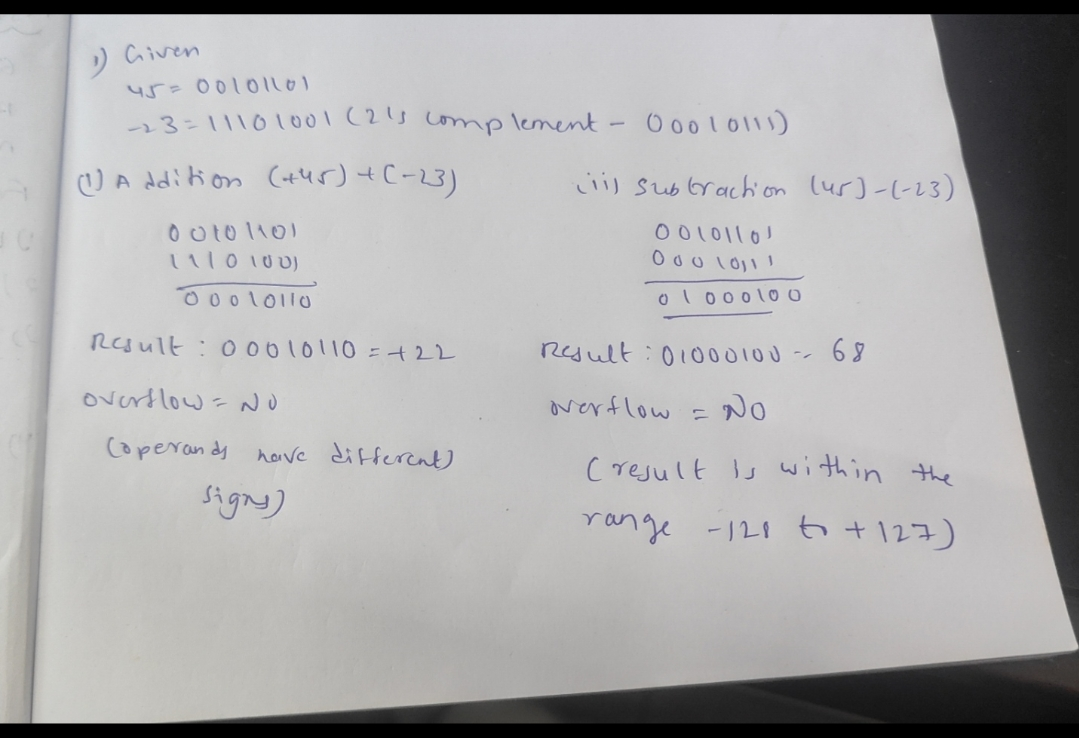 1) Given
45 = 00101101
-23 = 11101001 (2's complement - 00010111)
(i) Addition (+45) + (-23)
00101101
11101001
00010110
Result : 00010110 = +22
overflow = NO
(operands have different)
signs)
(ii) subtraction (45) - (-23)
00101101
00010111
01000100
Result : 01000100 = 68
overflow = NO
(result is within the
range -128 to +127)